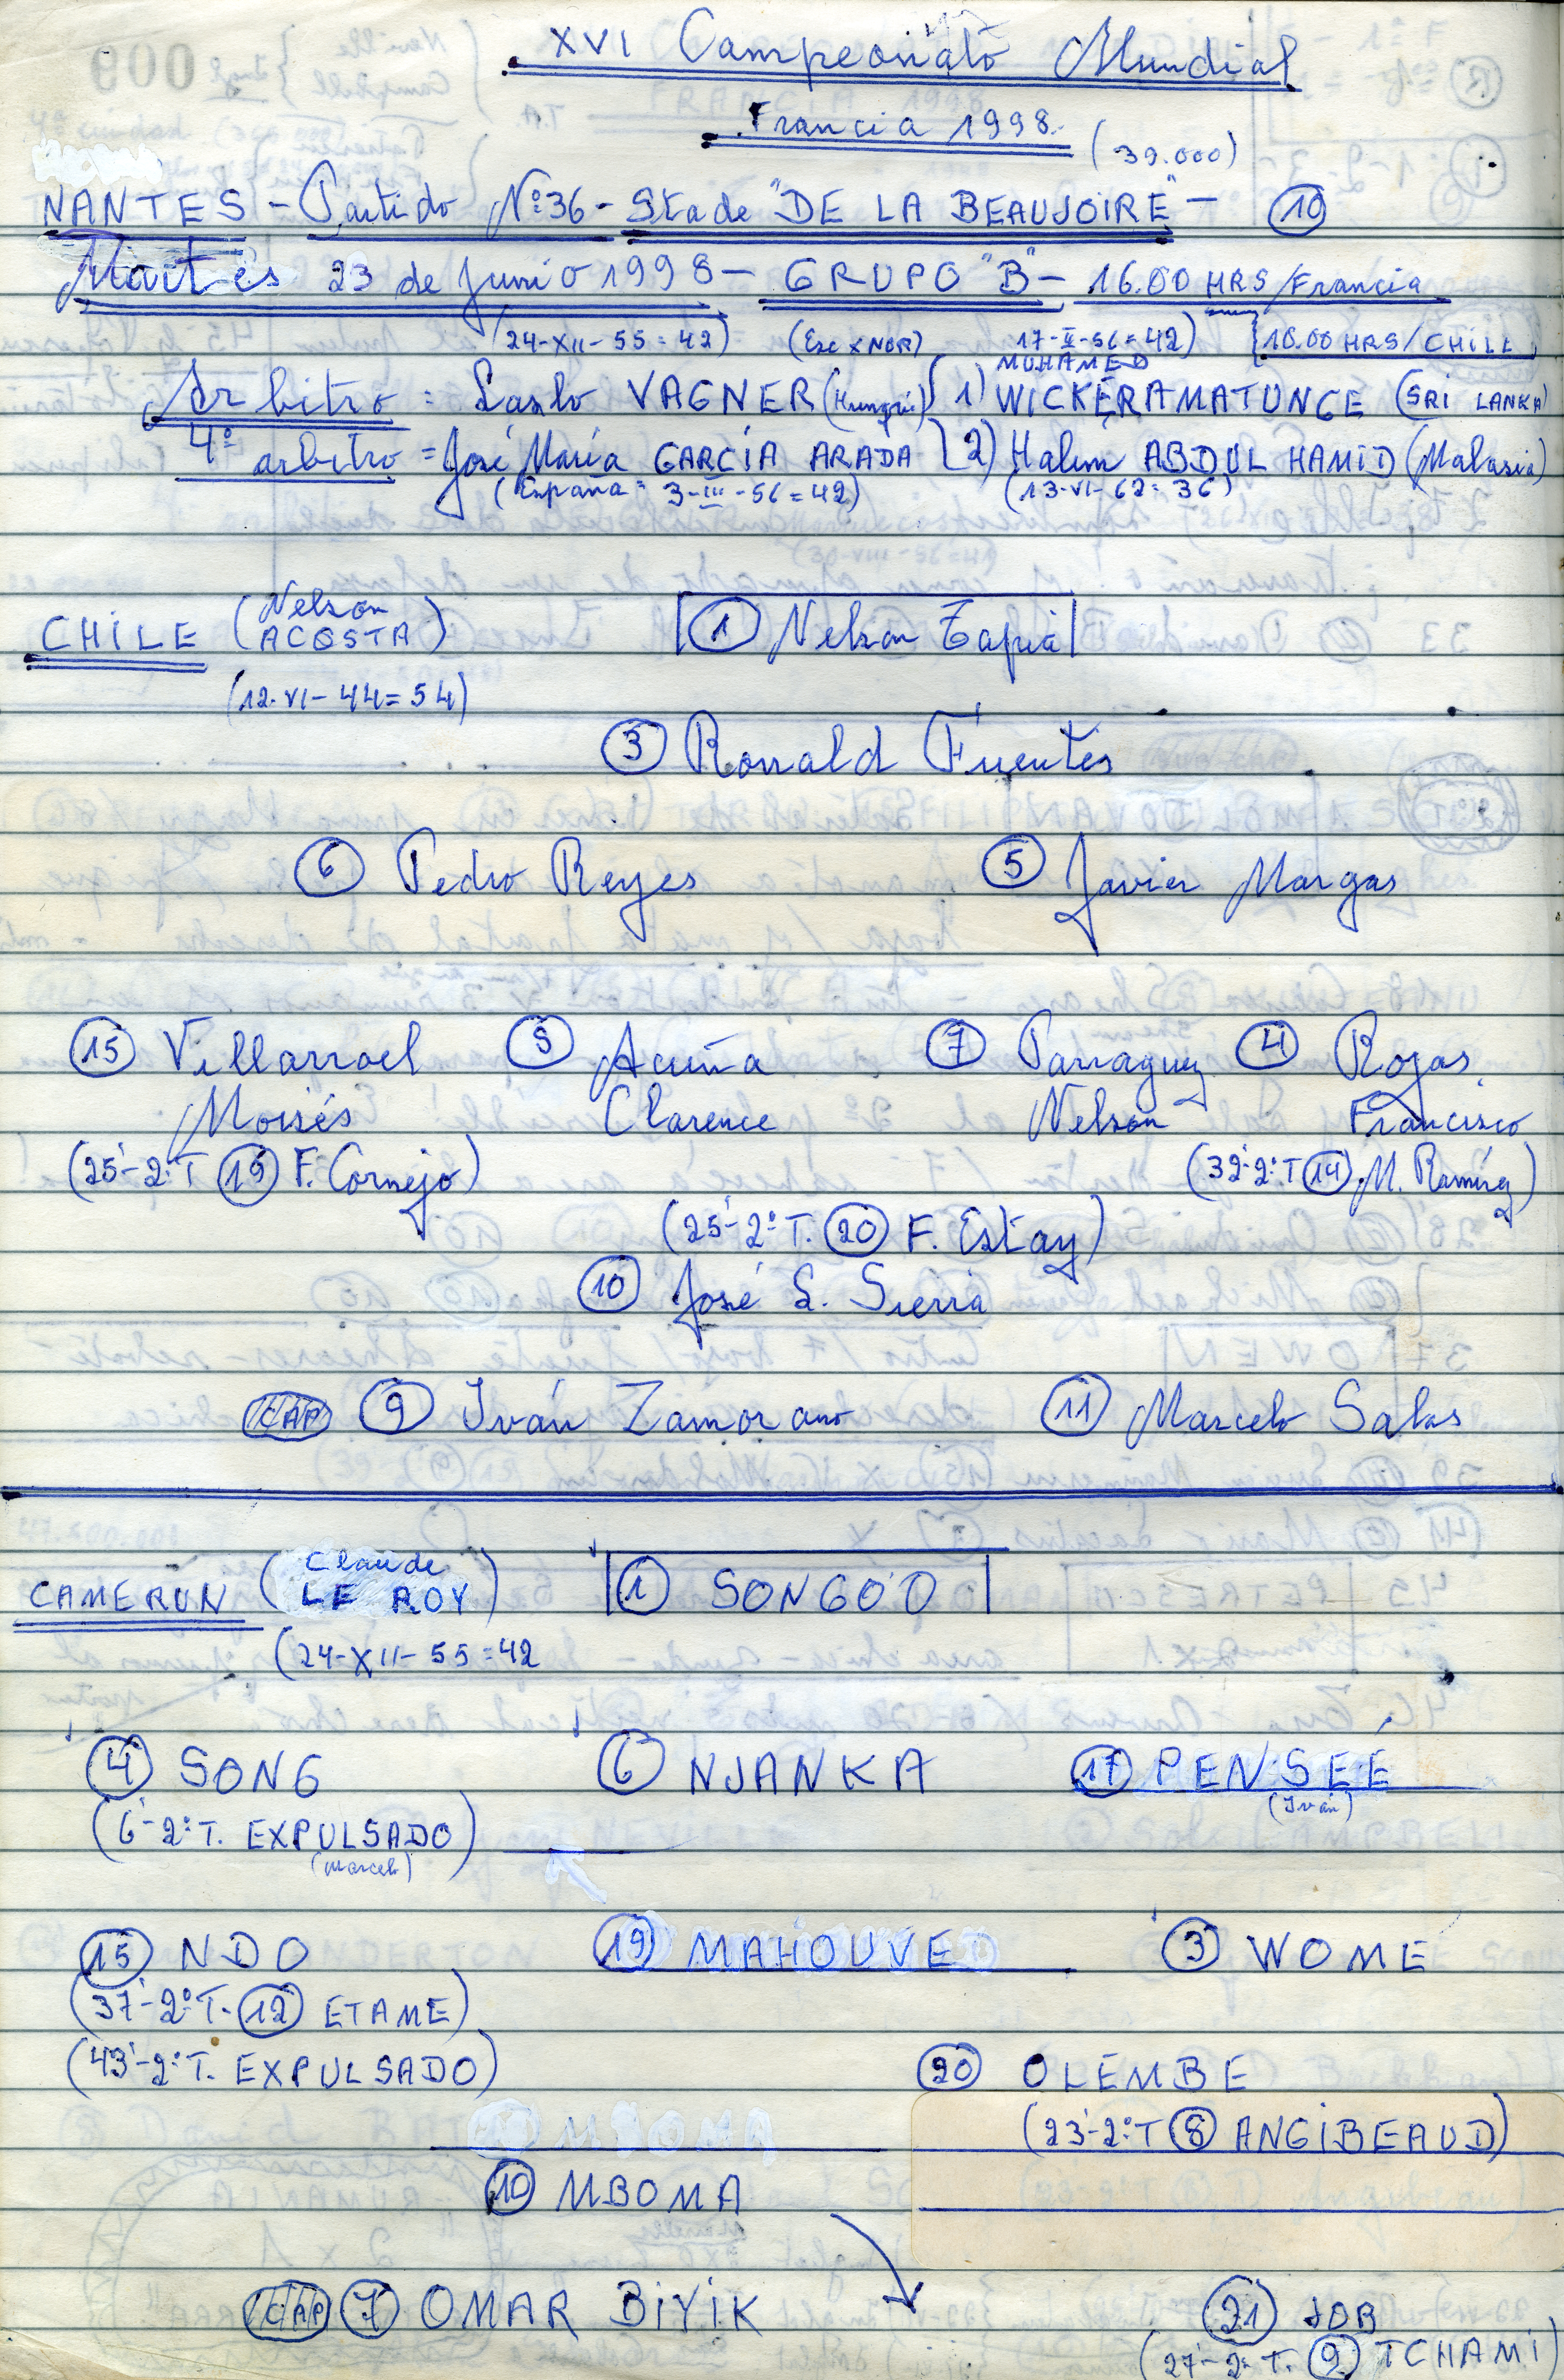 XVI Campeonato Mundial
Francia 1998
(39.000)
NANTES - Partido Nº 36 - Stade "DE LA BEAUJOIRE" - 10
Martes 23 de Junio 1998 - GRUPO "B" - 16.00 HRS/Francia
(24-XII-55=42) (Esc x NOR) 17-II-56=42) 10.00 HRS/CHILE
MUHAMED
Arbitro = Laszlo VAGNER (Hungría) 1) WICKERAMATUNGE (SRI LANKA)
4º arbitro = José María GARCÍA ARADA 2) Halim ABDUL HAMID (Malasia)
(España = 3-III-56=42) (13-VI-62=36)
CHILE (Nelson ACOSTA) 1 Nelson Tapia
(12-VI-44=54)
3 Ronald Fuentes
6 Pedro Reyes 5 Javier Margas
15 Villarroel 8 Acuña 7 Parraguez 4 Rojas
Moisés Clarence Nelson Francisco
(25'-2ºT 19 F. Cornejo) (32'-2ºT 14 M. Ramírez)
(25'-2ºT. 20 F. Estay)
10 José L. Sierra
CAP 9 Iván Zamorano 11 Marcelo Salas
CAMERUN (Claude LE ROY) 1 SONGO'O
(24-XII-55=42
4 SONG 6 NJANKA 17 PENSEÉ
(Iván)
(6'-2ºT. EXPULSADO)
(Marcelo)
15 NDO 19 MAHOUVE 3 WOME
(37'-2ºT. 12 ETAME)
(43'-2ºT. EXPULSADO) 20 OLEMBE
(23'-2ºT 8 ANGIBEAUD)
10 MBOMA
CAP 7 OMAR BIYIK 21 JOB
(27'-2ºT. 9 TCHAMI)